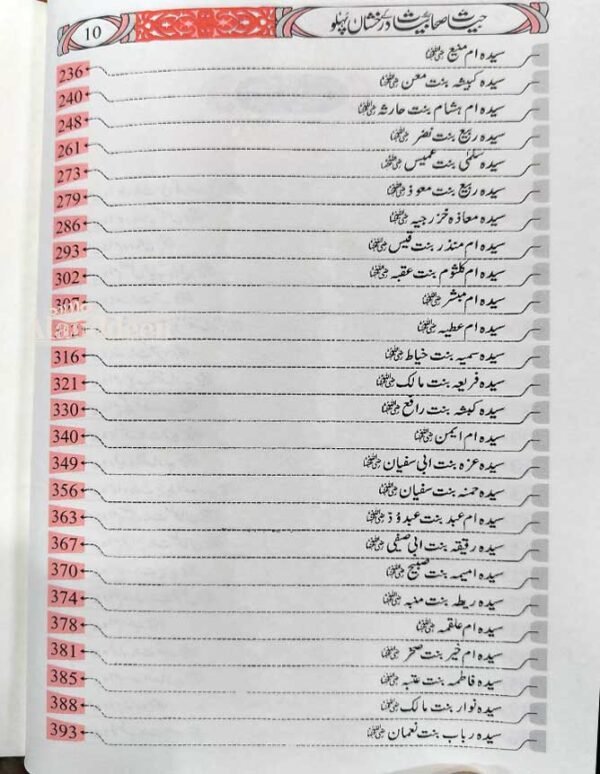 حیات صحابیات کے درخشاں پہلو 10
سیدہ ام منیع رضی اللہ عنہا 236
سیدہ کبیشہ بنت معن رضی اللہ عنہا 240
سیدہ ام ہشام بنت حارثہ رضی اللہ عنہا 248
سیدہ ربیع بنت نضر رضی اللہ عنہا 261
سیدہ سلمٰی بنت عمیس رضی اللہ عنہا 273
سیدہ ربیع بنت معوذ رضی اللہ عنہا 279
سیدہ معاذہ خزرجیہ رضی اللہ عنہا 286
سیدہ ام منذر بنت قیس رضی اللہ عنہا 293
سیدہ ام کلثوم بنت عقبہ رضی اللہ عنہا 302
سیدہ ام مبشر رضی اللہ عنہا 307
سیدہ ام عطیہ رضی اللہ عنہا
سیدہ سمیہ بنت خیاط رضی اللہ عنہا 316
سیدہ فریعہ بنت مالک رضی اللہ عنہا 321
سیدہ کبشہ بنت رافع رضی اللہ عنہا 330
سیدہ ام ایمن رضی اللہ عنہا 340
سیدہ عزہ بنت ابی سفیان رضی اللہ عنہا 349
سیدہ حمنہ بنت سفیان رضی اللہ عنہا 356
سیدہ ام عبد بنت عبدوُد رضی اللہ عنہا 363
سیدہ رقیقہ بنت ابی صیفی رضی اللہ عنہا 367
سیدہ امیمہ بنت صبیح رضی اللہ عنہا 370
سیدہ ریطہ بنت منبہ رضی اللہ عنہا 374
سیدہ ام علقمہ رضی اللہ عنہا 378
سیدہ ام خیر بنت صخر رضی اللہ عنہا 381
سیدہ فاطمہ بنت عتبہ رضی اللہ عنہا 385
سیدہ نوار بنت مالک رضی اللہ عنہا 388
سیدہ رباب بنت نعمان رضی اللہ عنہا 393